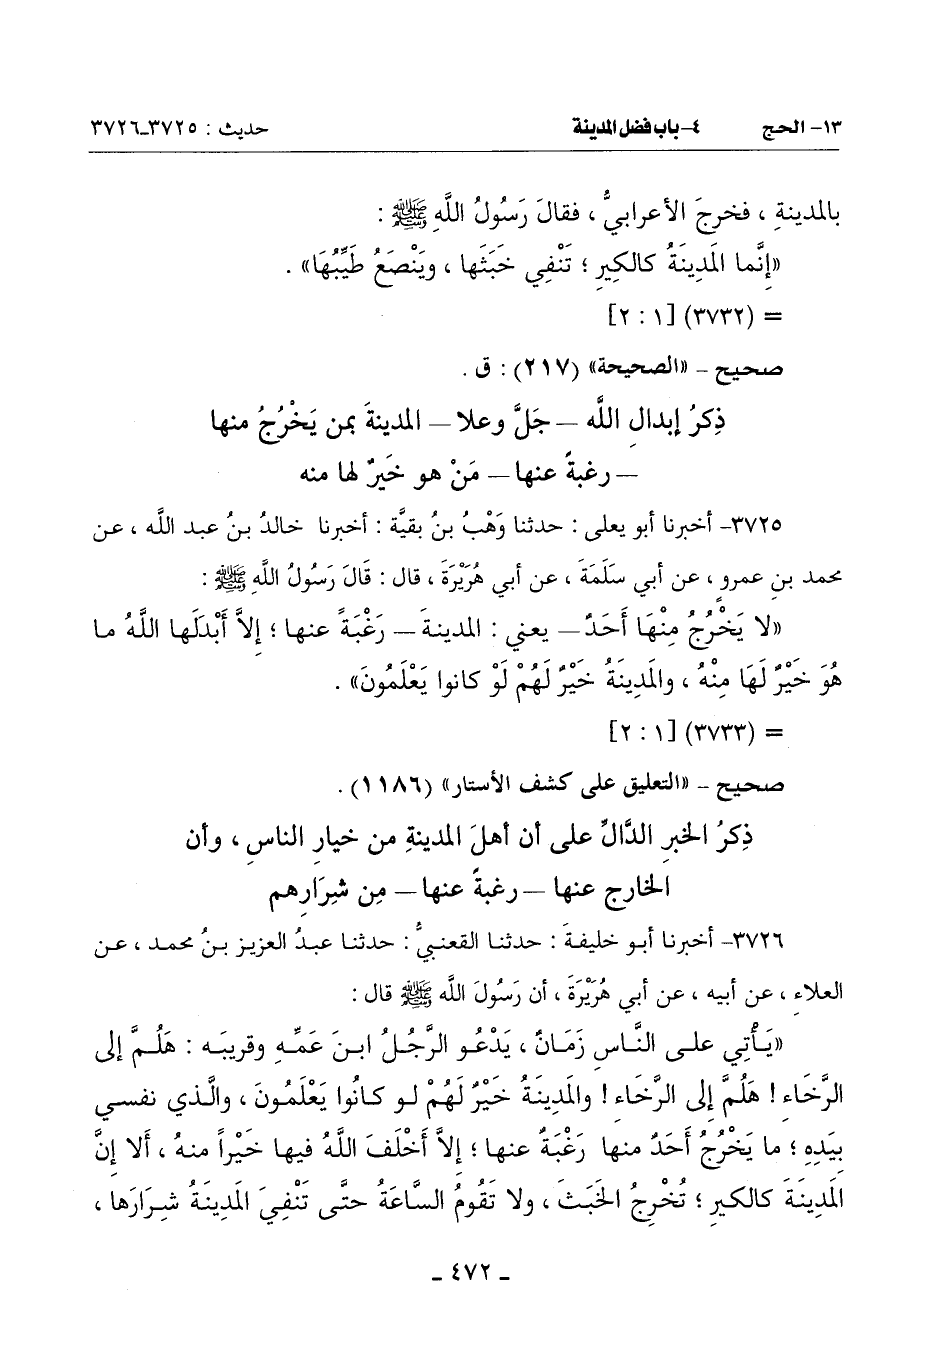 ١٣- الحج ٤- باب فضل المدينة حديث : ٣٧٢٥-٣٧٢٦
بالمدينةِ ، فخرجَ الأعرابيُّ ، فقالَ رَسُولُ اللَّهِ ﷺ :
«إنَّما المَدِينَةُ كالكِيرِ ؛ تَنْفِي خَبَثَها ، ويَنْصَعُ طَيِّبُهَا» .
= (٣٧٣٢) [١ : ٢]
صحيح - «الصحيحة» (٢١٧) : ق .
ذِكرُ إبدالِ اللَّه – جَلَّ وعلا – المدينةَ بمن يَخْرُجُ منها
– رغبةً عنها – مَنْ هو خَيرٌ لها منه
٣٧٢٥- أخبرنا أبو يعلى : حدثنا وَهْبُ بنُ بقيَّة : أخبرنا خالدُ بنُ عبد اللَّه ، عن
محمد بنِ عمرو ، عن أبي سَلَمَةَ ، عن أبي هُرَيْرَةَ ، قال : قَالَ رَسُولُ اللَّهِ ﷺ :
«لا يَخْرُجُ مِنْهَا أَحَدٌ – يعني : المدينةَ – رَغْبَةً عنها ؛ إلاَّ أَبْدَلَها اللَّهُ ما
هُوَ خَيْرٌ لَهَا مِنْهُ ، والمَدِينَةُ خَيْرٌ لَهُمْ لَوْ كانوا يَعْلَمُونَ» .
= (٣٧٣٣) [١ : ٢]
صحيح - «التعليق على كشف الأستار» (١١٨٦) .
ذِكرُ الخبرِ الدَّالِّ على أن أهلَ المدينةِ من خيارِ الناسِ ، وأن
الخارج عنها – رغبةً عنها – مِن شِرَارِهم
٣٧٢٦- أخبرنا أبو خليفةَ : حدثنا القعنبيُّ : حدثنا عبدُ العزيز بنُ محمد ، عن
العلاءِ ، عن أبيه ، عن أبي هُرَيْرَةَ ، أن رَسُولَ اللَّه ﷺ قال :
«يَأْتِي على النَّاسِ زَمَانٌ ، يَدْعُو الرَّجُلُ ابنَ عَمِّهِ وقريبَه : هَلُمَّ إلى
الرَّخَاءِ ! هَلُمَّ إلى الرَّخَاءِ ! والمَدِينَةُ خَيْرٌ لَهُمْ لو كانُوا يَعْلَمُونَ ، والَّذي نفسي
بِيَدِهِ ؛ ما يَخْرُجُ أَحَدٌ منها رَغْبَةً عنها ؛ إلاَّ أَخْلَفَ اللَّهُ فيها خَيْراً منهُ ، أَلا إنَّ
المَدِينَةَ كالكيرِ ؛ تُخْرِجُ الخَبَثَ ، ولا تَقُومُ السَّاعَةُ حتَّى تَنْفِيَ المَدِينَةُ شِرَارَها ،
- ٤٧٢ -